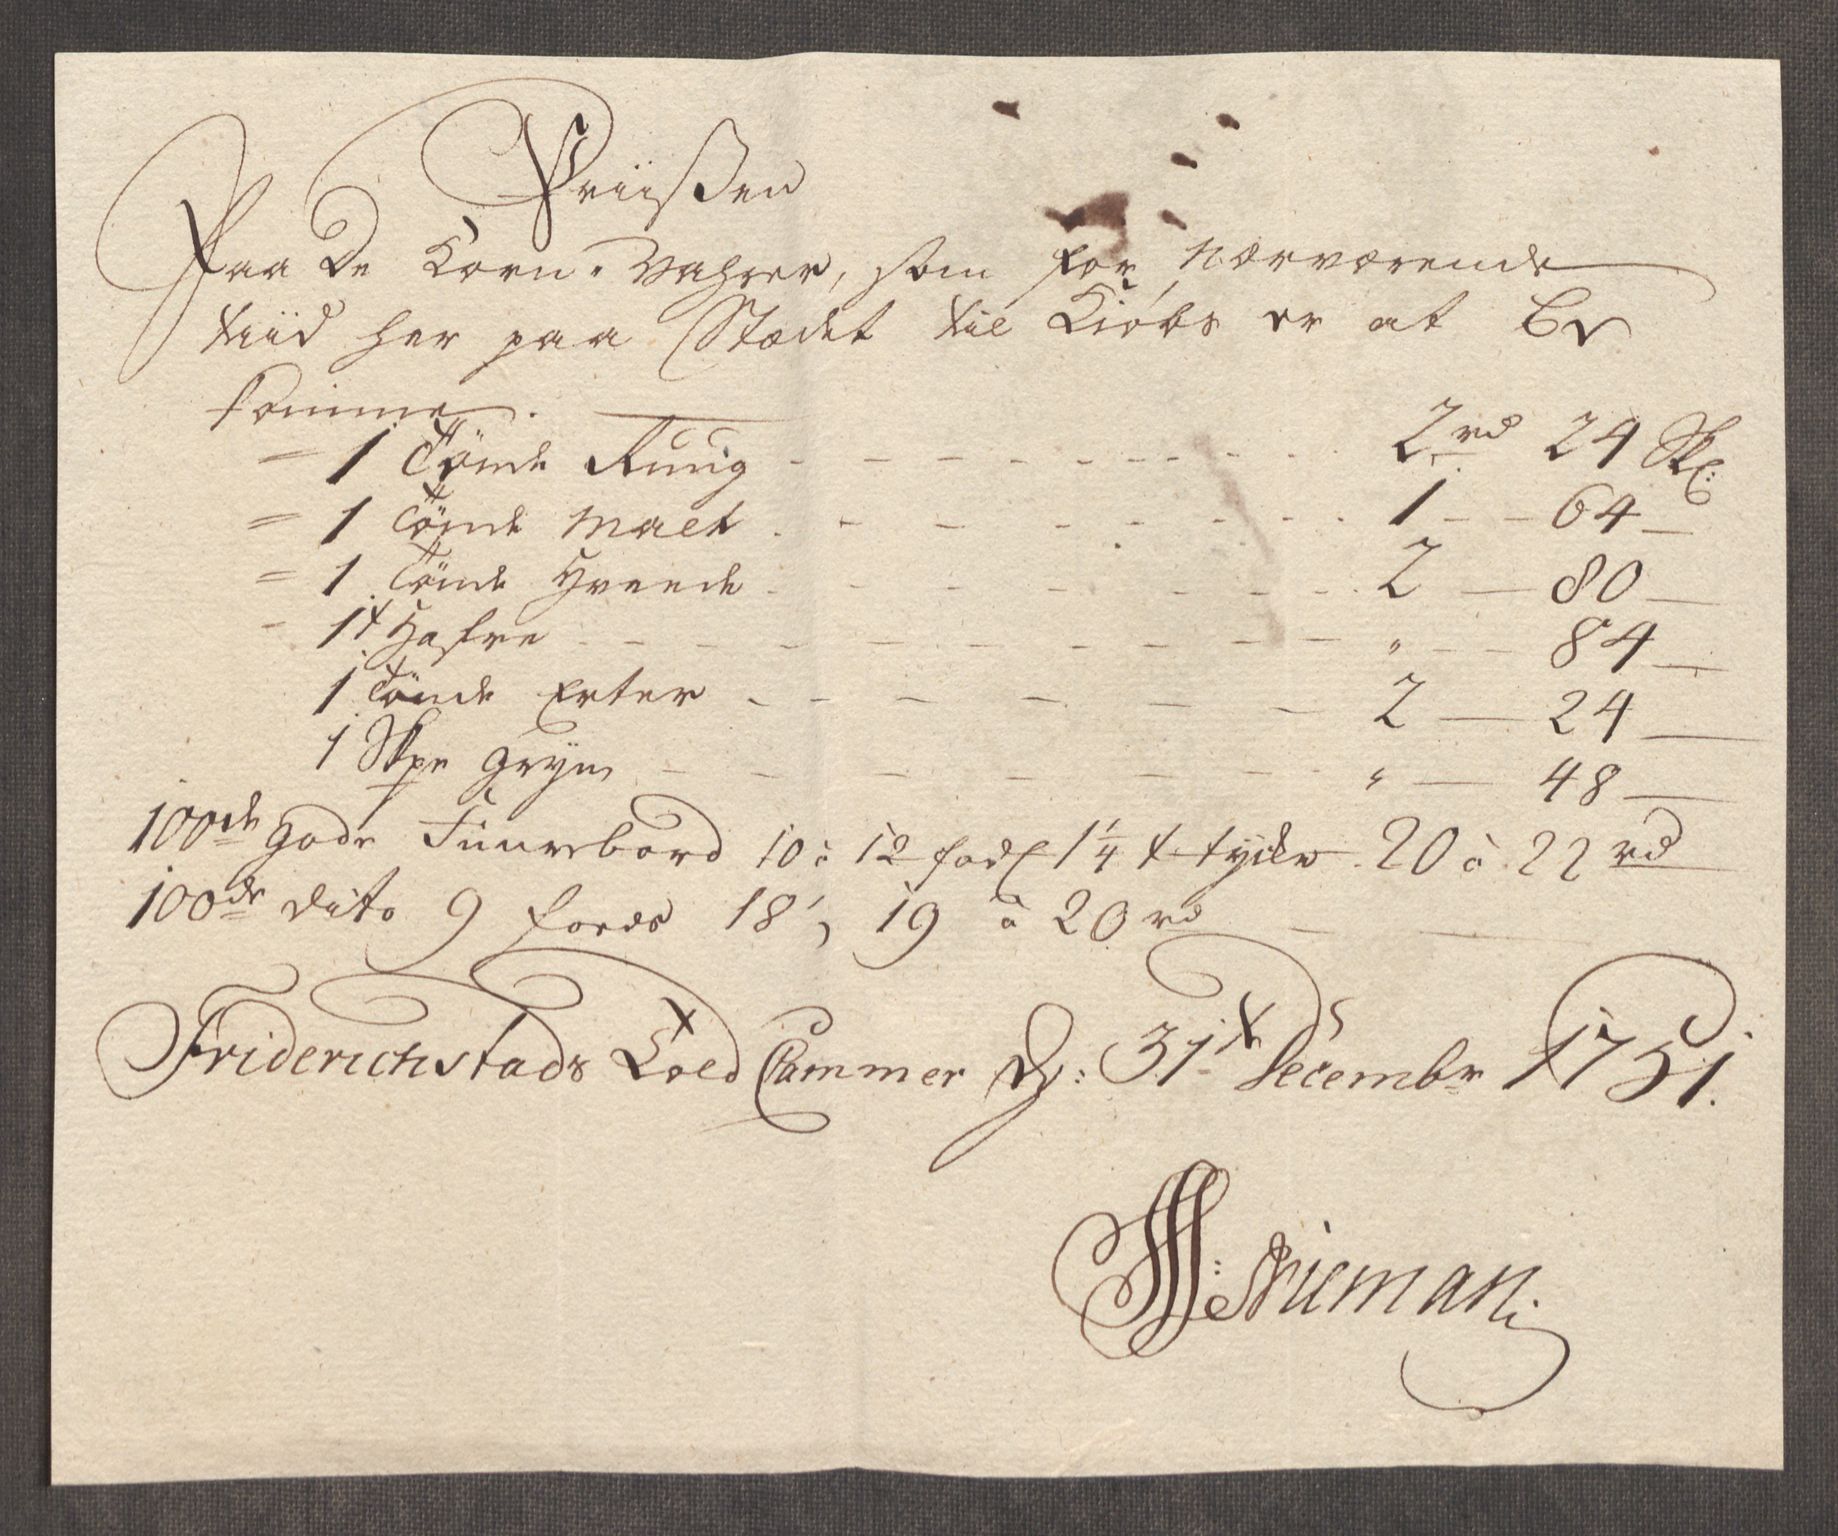 Priisen
Paa de Korn-Vahrer, som for nærværende
tiid her paa Stædet til Kiöbs er at Be
komme.
= 1 Tönde Ruug - - - 2 rd 24 Sk:
= 1 Tönde Malt - - - 1 - - 64 -
= 1 Tönde Hveede - - - 2 - 80 -
- 1 t Hafre - - - " - - 84 -
1 Tönde Erter - - - 2 - 24 -
1 Skpe Gryn - - - " - 48 -
100de gode Fuurebord 10 à 12 fod 1 1/4 t tycke 20 à 22 rd
100de dito 9 foeds 18, 19 à 20 rd
Friderichstads Told Cammer D: 31t Decembr 1751.
Nieman